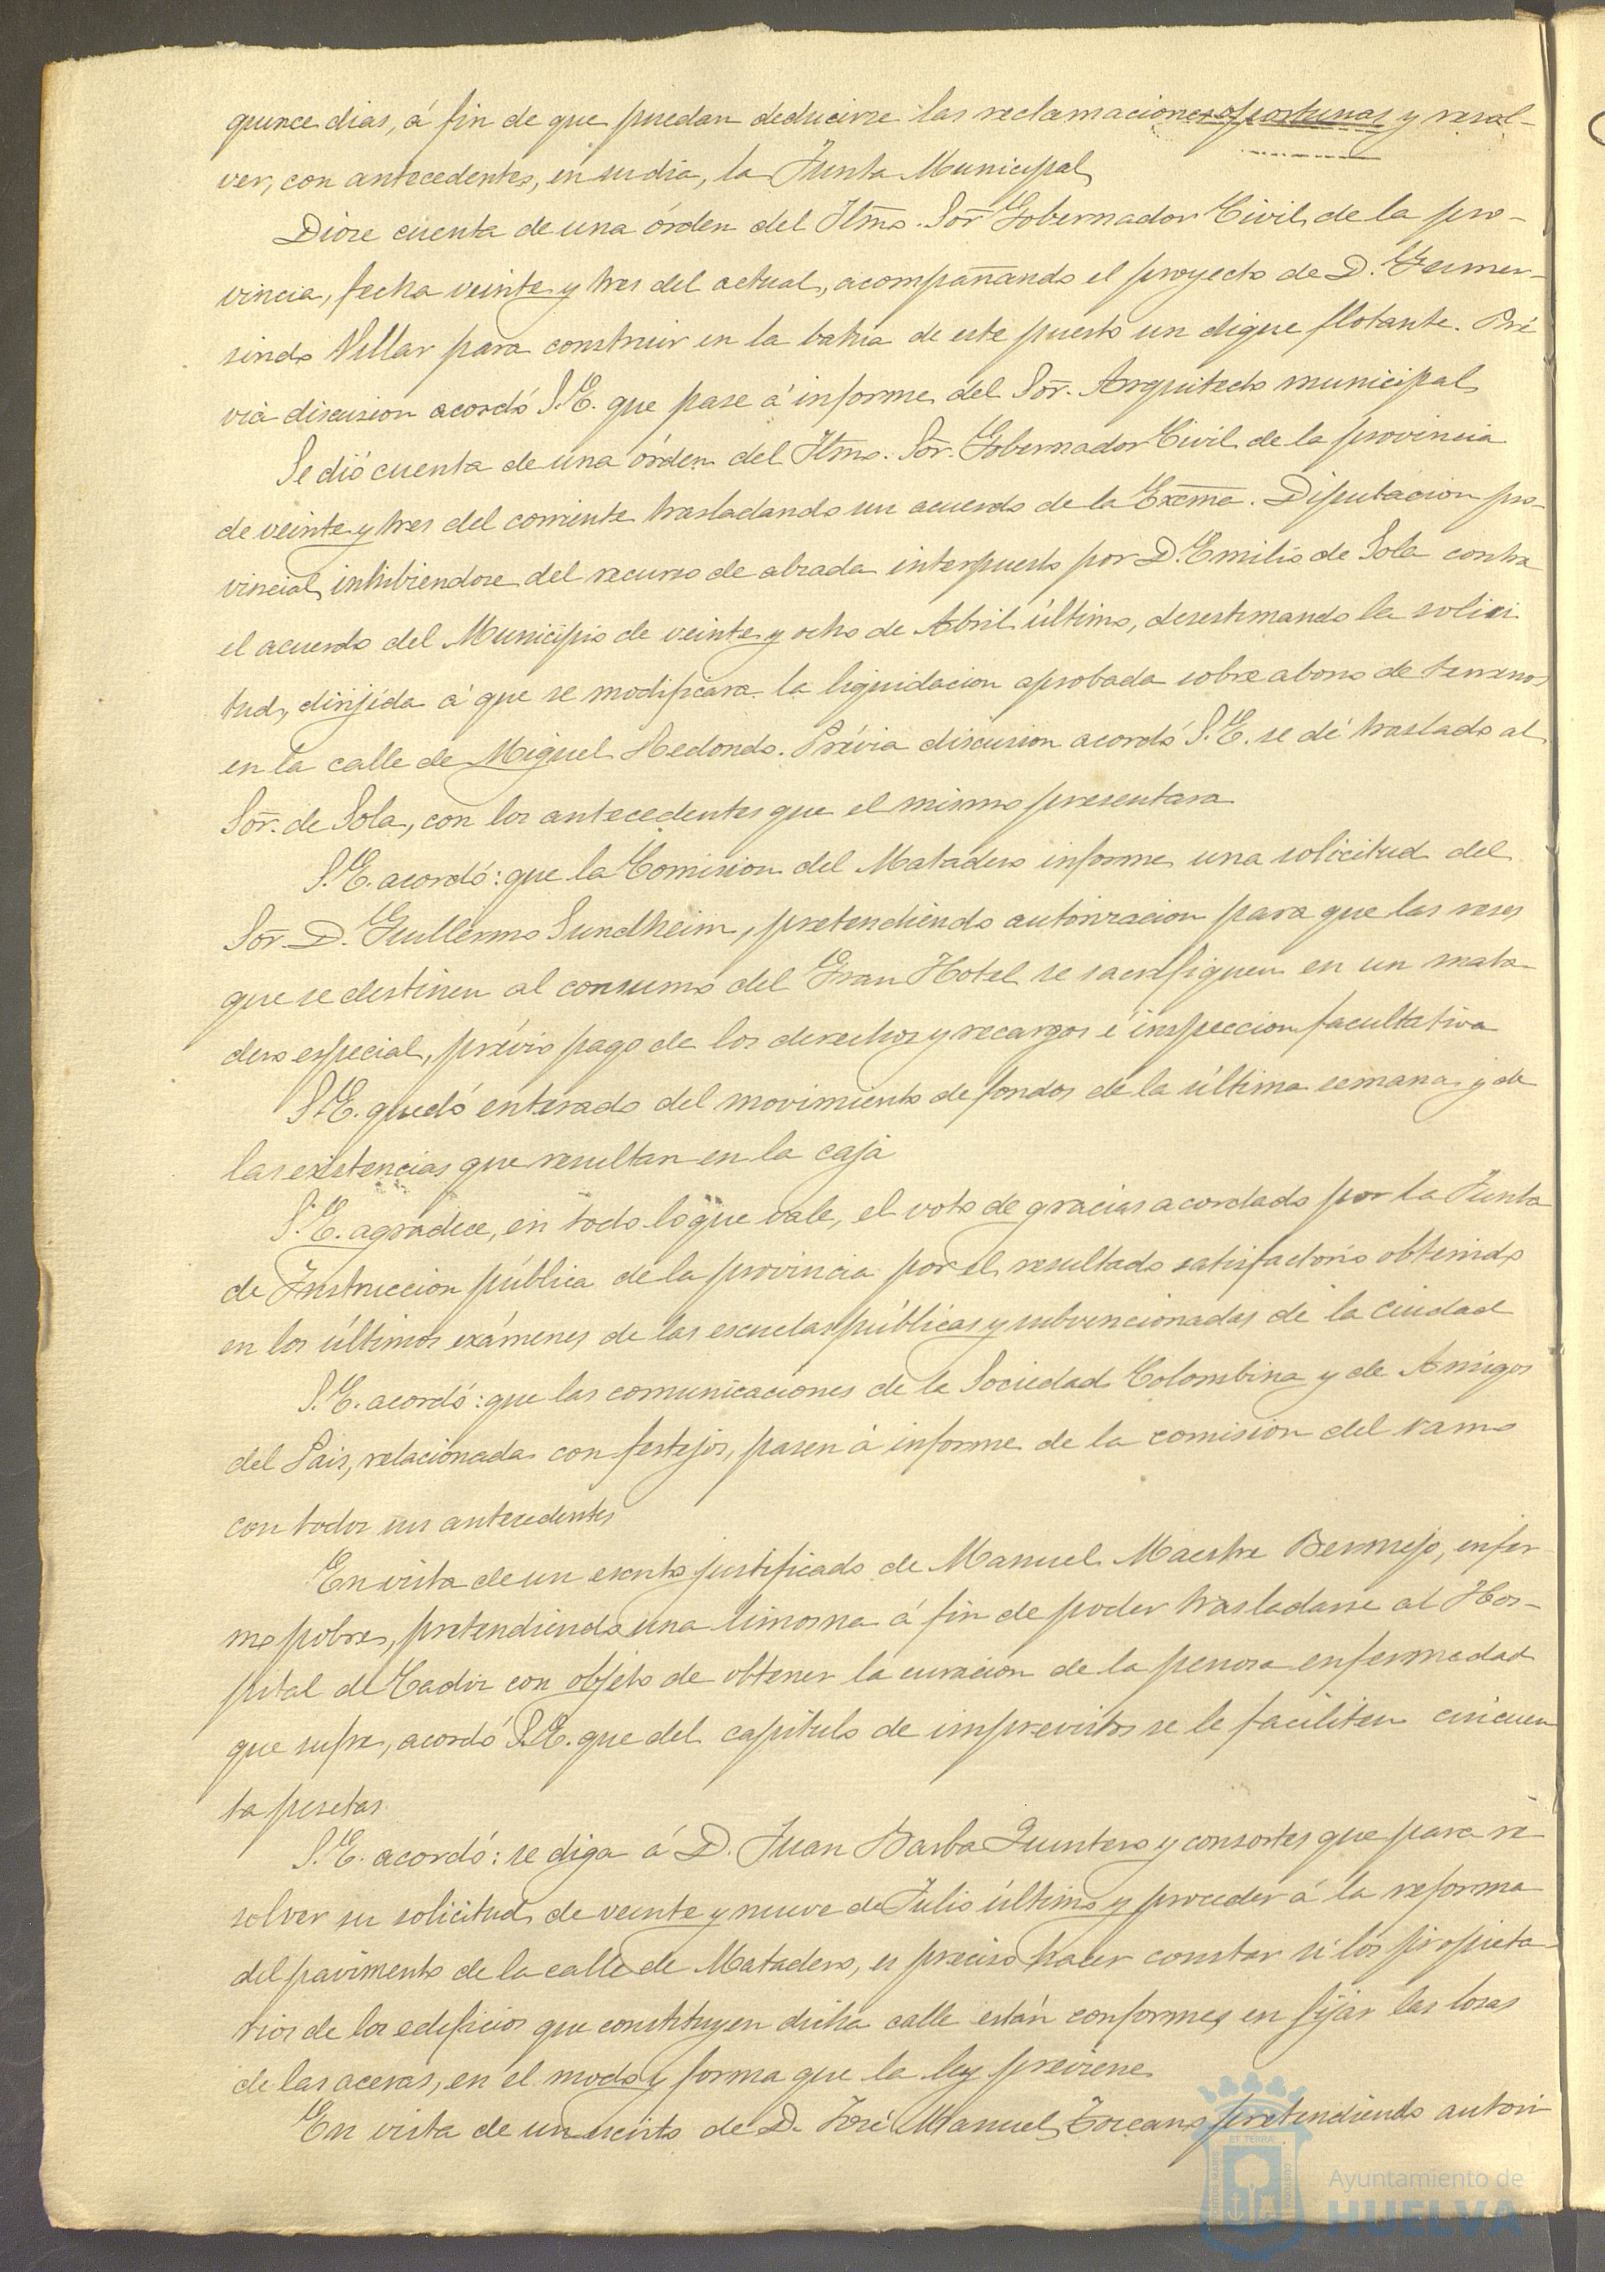 quince dias, á fin de que puedan deducirse las reclamaciones oportunas y resol-
ver, con antecedentes, en su dia, la Junta Municipal
Diose cuenta de una órden del Iltmo. Sor Gobernador Civil de la pro-
vincia, fecha veinte y tres del actual, acompañando el proyecto de D. Gumer-
sindo Villar para construir en la bahia de este puerto un dique flotante. Pré
via discusion acordó S.E. que pase á informe del Sor. Arquitecto municipal
Se dió cuenta de una órden del Iltmo. Sor. Gobernador Civil de la provincia
de veinte y tres del corriente trasladando un acuerdo de la Excma. Diputacion pro-
vincial, inhibiendose del recurso de alzada interpuesto por D. Emilio de Sola contra
el acuerdo del Municipio de veinte y ocho de Abril último, desestimando la solici
tud, dirijida á que se modificara la liquidacion aprobada sobre abono de terrenos
en la calle de Miguel Redondo. Prévia discusion acordó S.E. se dé traslado al
Sor. de Sola, con los antecedentes que el mismo presentara
S.E. acordó: que la Comision del Matadero informe una solicitud del
Sor. D. Guillermo Sundheim, pretendiendo autorizacion para que las reses
que se destinen al consumo del Gran Hotel se sacrifiquen en un mata-
dero especial, prévio pago de los derechos y recargos é inspeccion facultativa
S.E. quedó enterado del movimiento de fondos de la última semana y de
las existencias que resultan en la caja
S.E. agradece, en todo lo que vale, el voto de gracias acordado por la Junta
de Instruccion pública de la provincia por el resultado satisfactorio obtenido
en los últimos exámenes de las escuelas públicas y subvencionadas de la ciudad
S.E. acordó: que las comunicaciones de la Sociedad Colombina y de Amigos
del Pais, relacionadas con festejos, pasen á informe de la comision del ramo
con todos sus antecedentes
En vista de un escrito justificado de Manuel Maestre Bermejo, enfer-
mo pobre, pretendiendo una limosna á fin de poder trasladarse al Hos-
pital de Cadiz con objeto de obtener la curacion de la penosa enfermedad
que sufre, acordó S.E. que del capitulo de imprevistos se le faciliten cincuen
ta pesetas.
S.E. acordó: se diga á D. Juan Barba Quintero y consortes que para re
solver su solicitud de veinte y nueve de Julio último y proceder á la reforma
del pavimento de la calle de Matadero, es preciso hacer constar si los propieta-
rios de los edificios que constituyen dicha calle están conformes en fijar las losas
de las aceras, en el modo y forma que la ley previene
En vista de un escrito de D. José Manuel Toscano pretendiendo autori
Ayuntamiento de
HUELVA